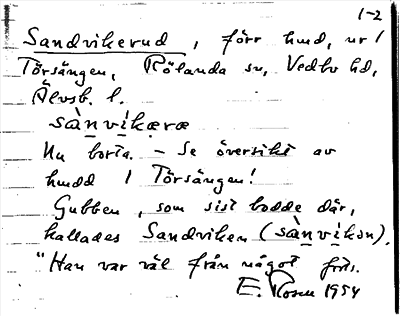 1-2
Sandvikerud, förr hmd, ur 1
Törsängen, Rölanda sn, Vedbo hd,
Älvsb. l.
sànvíkæræ
Nu borta. – Se översikt av
hmdd 1 Törsängen!
Gubben, som sist bodde där,
kallades Sandviken (sànvíkən).
"Han var väl från något
E. Rosen 1954